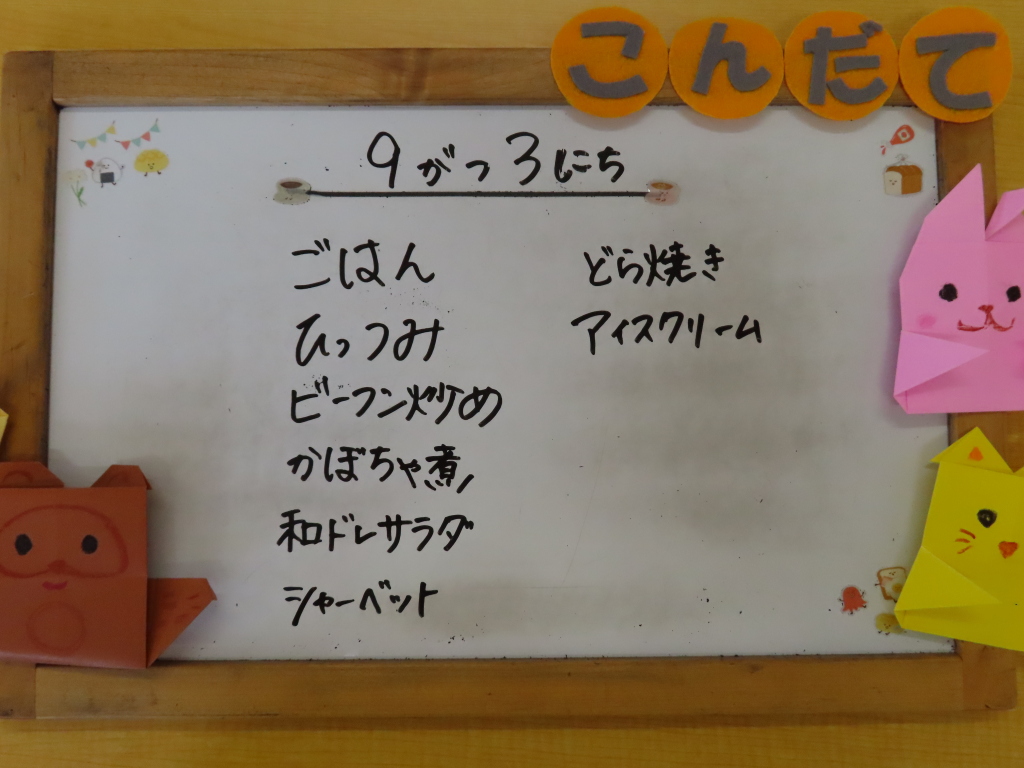 こんだて
9がつ3にち
ごはん
ひっつみ
ビーフン炒め
かぼちゃ煮
和ドレサラダ
シャーベット
どら焼き
アイスクリーム